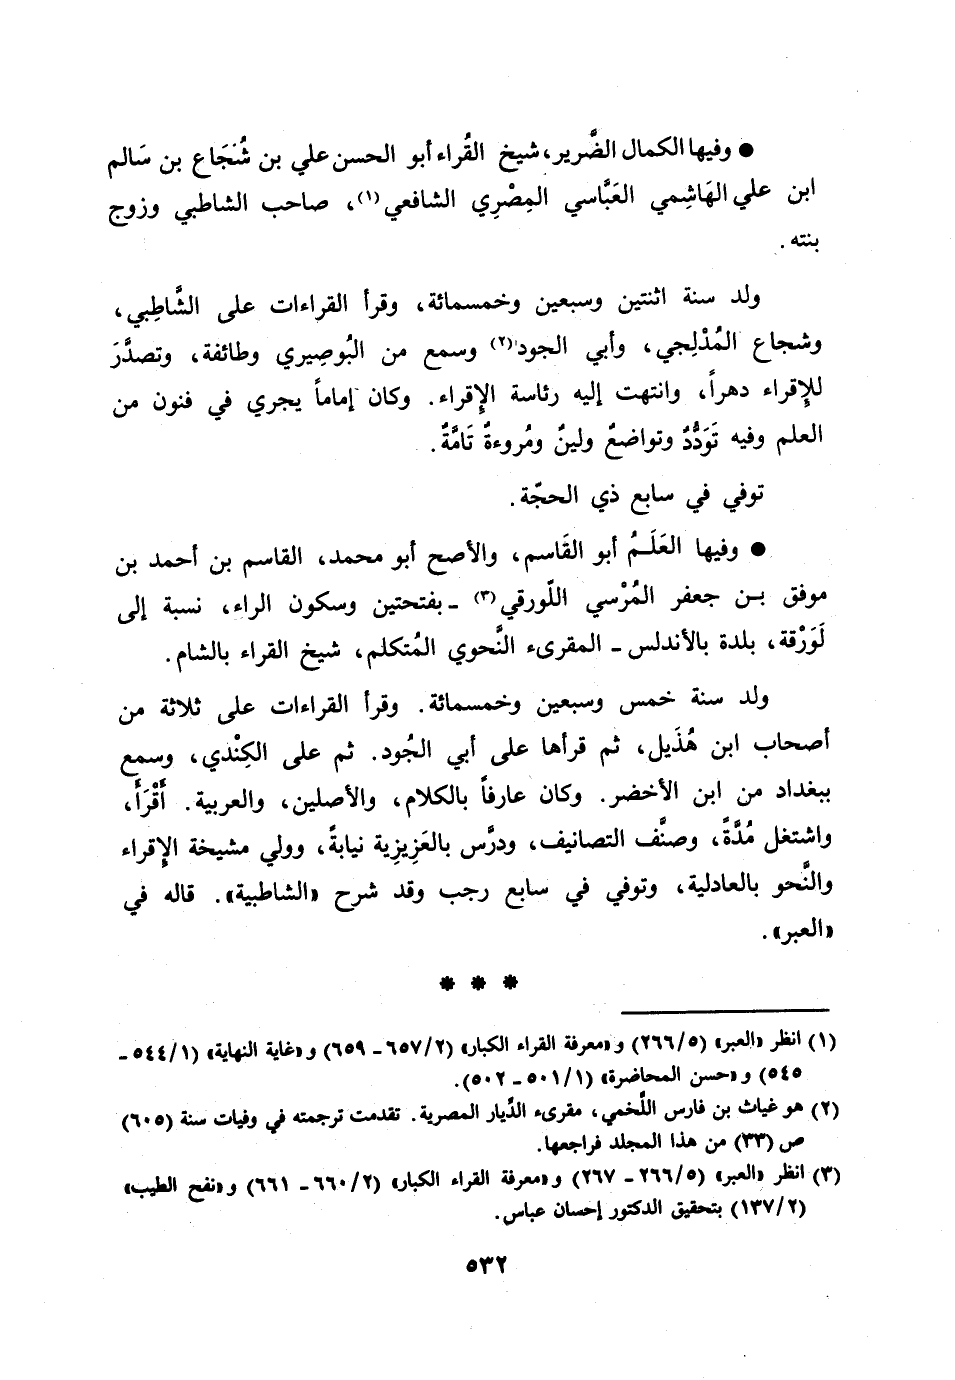 ● وفيها الكمال الضَّرير، شيخ القُراء أبو الحسن علي بن شُجَاع بن سَالم
ابن علي الهَاشِمي العَبَّاسي المِصْرِي الشافعي(١)، صاحب الشاطبي وزوج
بنته.
ولد سنة اثنتين وسبعين وخمسمائة، وقرأ القراءات على الشَّاطِبي،
وشجاع المُدْلِجي، وأبي الجود(٢) وسمع من البُوصِيري وطائفة، وتصدَّرَ
للإِقراء دهراً، وانتهت إليه رئاسة الإِقراء. وكان إماماً يجري في فنون من
العلم وفيه تَوَدُّدٌ وتواضعٌ ولينٌ ومُروءةٌ تَامَّةٌ.
توفي في سابع ذي الحجّة.
● وفيها العَلَـمُ أبو القَاسم، والأصح أبو محمد، القاسم بن أحمد بن
موفق بـن جعفر المُرْسي اللّورقي(٣) ـ بفتحتين وسكون الراء، نسبة إلى
لَوَرْقة، بلدة بالأندلس ـ المقرىء النَّحوي المُتكلم، شيخ القراء بالشام.
ولد سنة خمس وسبعين وخمسمائة. وقرأ القراءات على ثلاثة من
أصحاب ابن هُذَيل، ثم قرأها على أبي الجُود. ثم على الكِنْدي، وسمع
ببغداد من ابن الأخضر. وكان عارفاً بالكلام، والأصلين، والعربية. أَقْرَأَ،
واشتغل مُدَّةً، وصنَّف التصانيف، ودرَّس بالعَزِيزية نيابةً، وولي مشيخة الإِقراء
والنَّحو بالعادلية، وتوفي في سابع رجب وقد شرح «الشاطبية». قاله في
«العبر».
* * *
(١) انظر «العبر» (٢٦٦/٥) و«معرفة القراء الكبار» (٦٥٧/٢ ـ ٦٥٩) و«غاية النهاية» (٥٤٤/١ ـ
٥٤٥) و«حسن المحاضرة» (٥٠١/١ ـ ٥٠٢).
(٢) هو غياث بن فارس اللَّخمي، مقرىء الدِّيار المصرية. تقدمت ترجمته في وفيات سنة (٦٠٥)
ص (٣٣) من هذا المجلد فراجعها.
(٣) انظر «العبر» (٢٦٦/٥ ـ ٢٦٧) و«معرفة القراء الكبار» (٦٦٠/٢ ـ ٦٦١) و«نفح الطيب»
(١٣٧/٢) بتحقيق الدكتور إحسان عباس.
٥٣٢